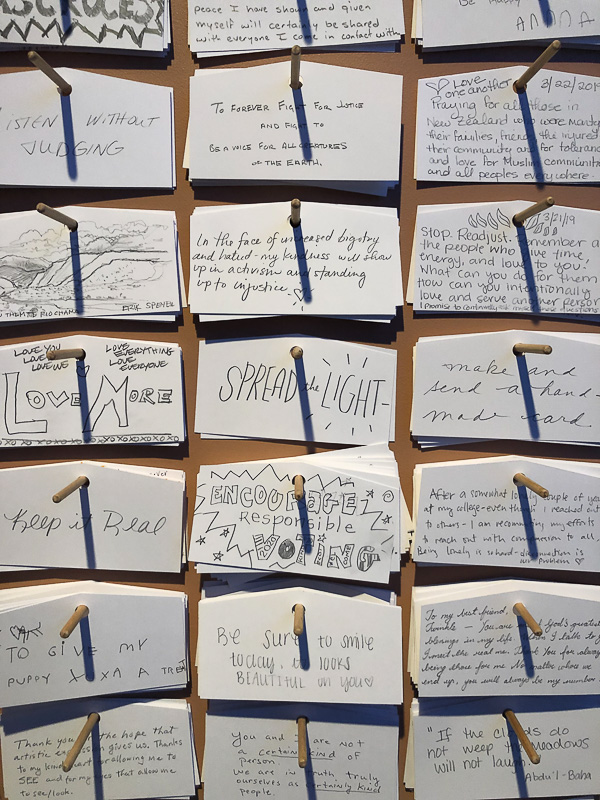 peace I have shown and given
myself will certainly be shared
with everyone I come in contact with
Be Happy
ANNA
LISTEN WITHOUT
JUDGING
TO FOREVER FIGHT FOR JUSTICE
AND FIGHT TO
BE A VOICE FOR ALL CREATURES
OF THE EARTH.
Love
one another
3/22/2019
Praying for all those in
New Zealand who were
their families, friends the injured
their community and for tolerance
and love for Muslim communities
and all peoples everywhere.
ERIK SPEYER
In the face of increased bigotry
and hatred - my kindness will show
up in activism and standing
up to injustice.
3/21/19
Stop. Readjust. Remember a
the people who give time,
energy, and love to you.
What can you do for them
how can you intentionally
love and serve another person
I promise to continually these questions
LOVE YOU
LOVE
LOVE WE
LOVE
EVERYTHING
LOVE
EVERYONE
LOVE MORE
XOXOXOXOXOXOXOXO
SPREAD the LIGHT-
make and
send a hand-
made card
Keep it Real
ENCOURAGE
Responsible
After a somewhat lonely couple of yea
at my college - even though I reached out
to others - I am recommitting my efforts
to reach out with compassion to all.
Being lonely is school -
our problem
TO GIVE MY
PUPPY A TREA
Be sure to smile
today, it looks
BEAUTIFUL on you
To my best friend,
Trumble - You are God's greatest
blessings in my life. When I talk to y
I meet the real me. Thank you for always
being there for me. No matter where we
end up, you will always be my number
Thank you the hope that
artistic expression gives us. Thanks
to my for allowing me to
SEE and for my eyes that allow me
to see/look.
You and I are not
a certain kind of
person.
We are in truth, truly
ourselves as certainly kind
people.
"If the clouds do
not weep the meadows
will not laugh."
Abdu'l-Baha